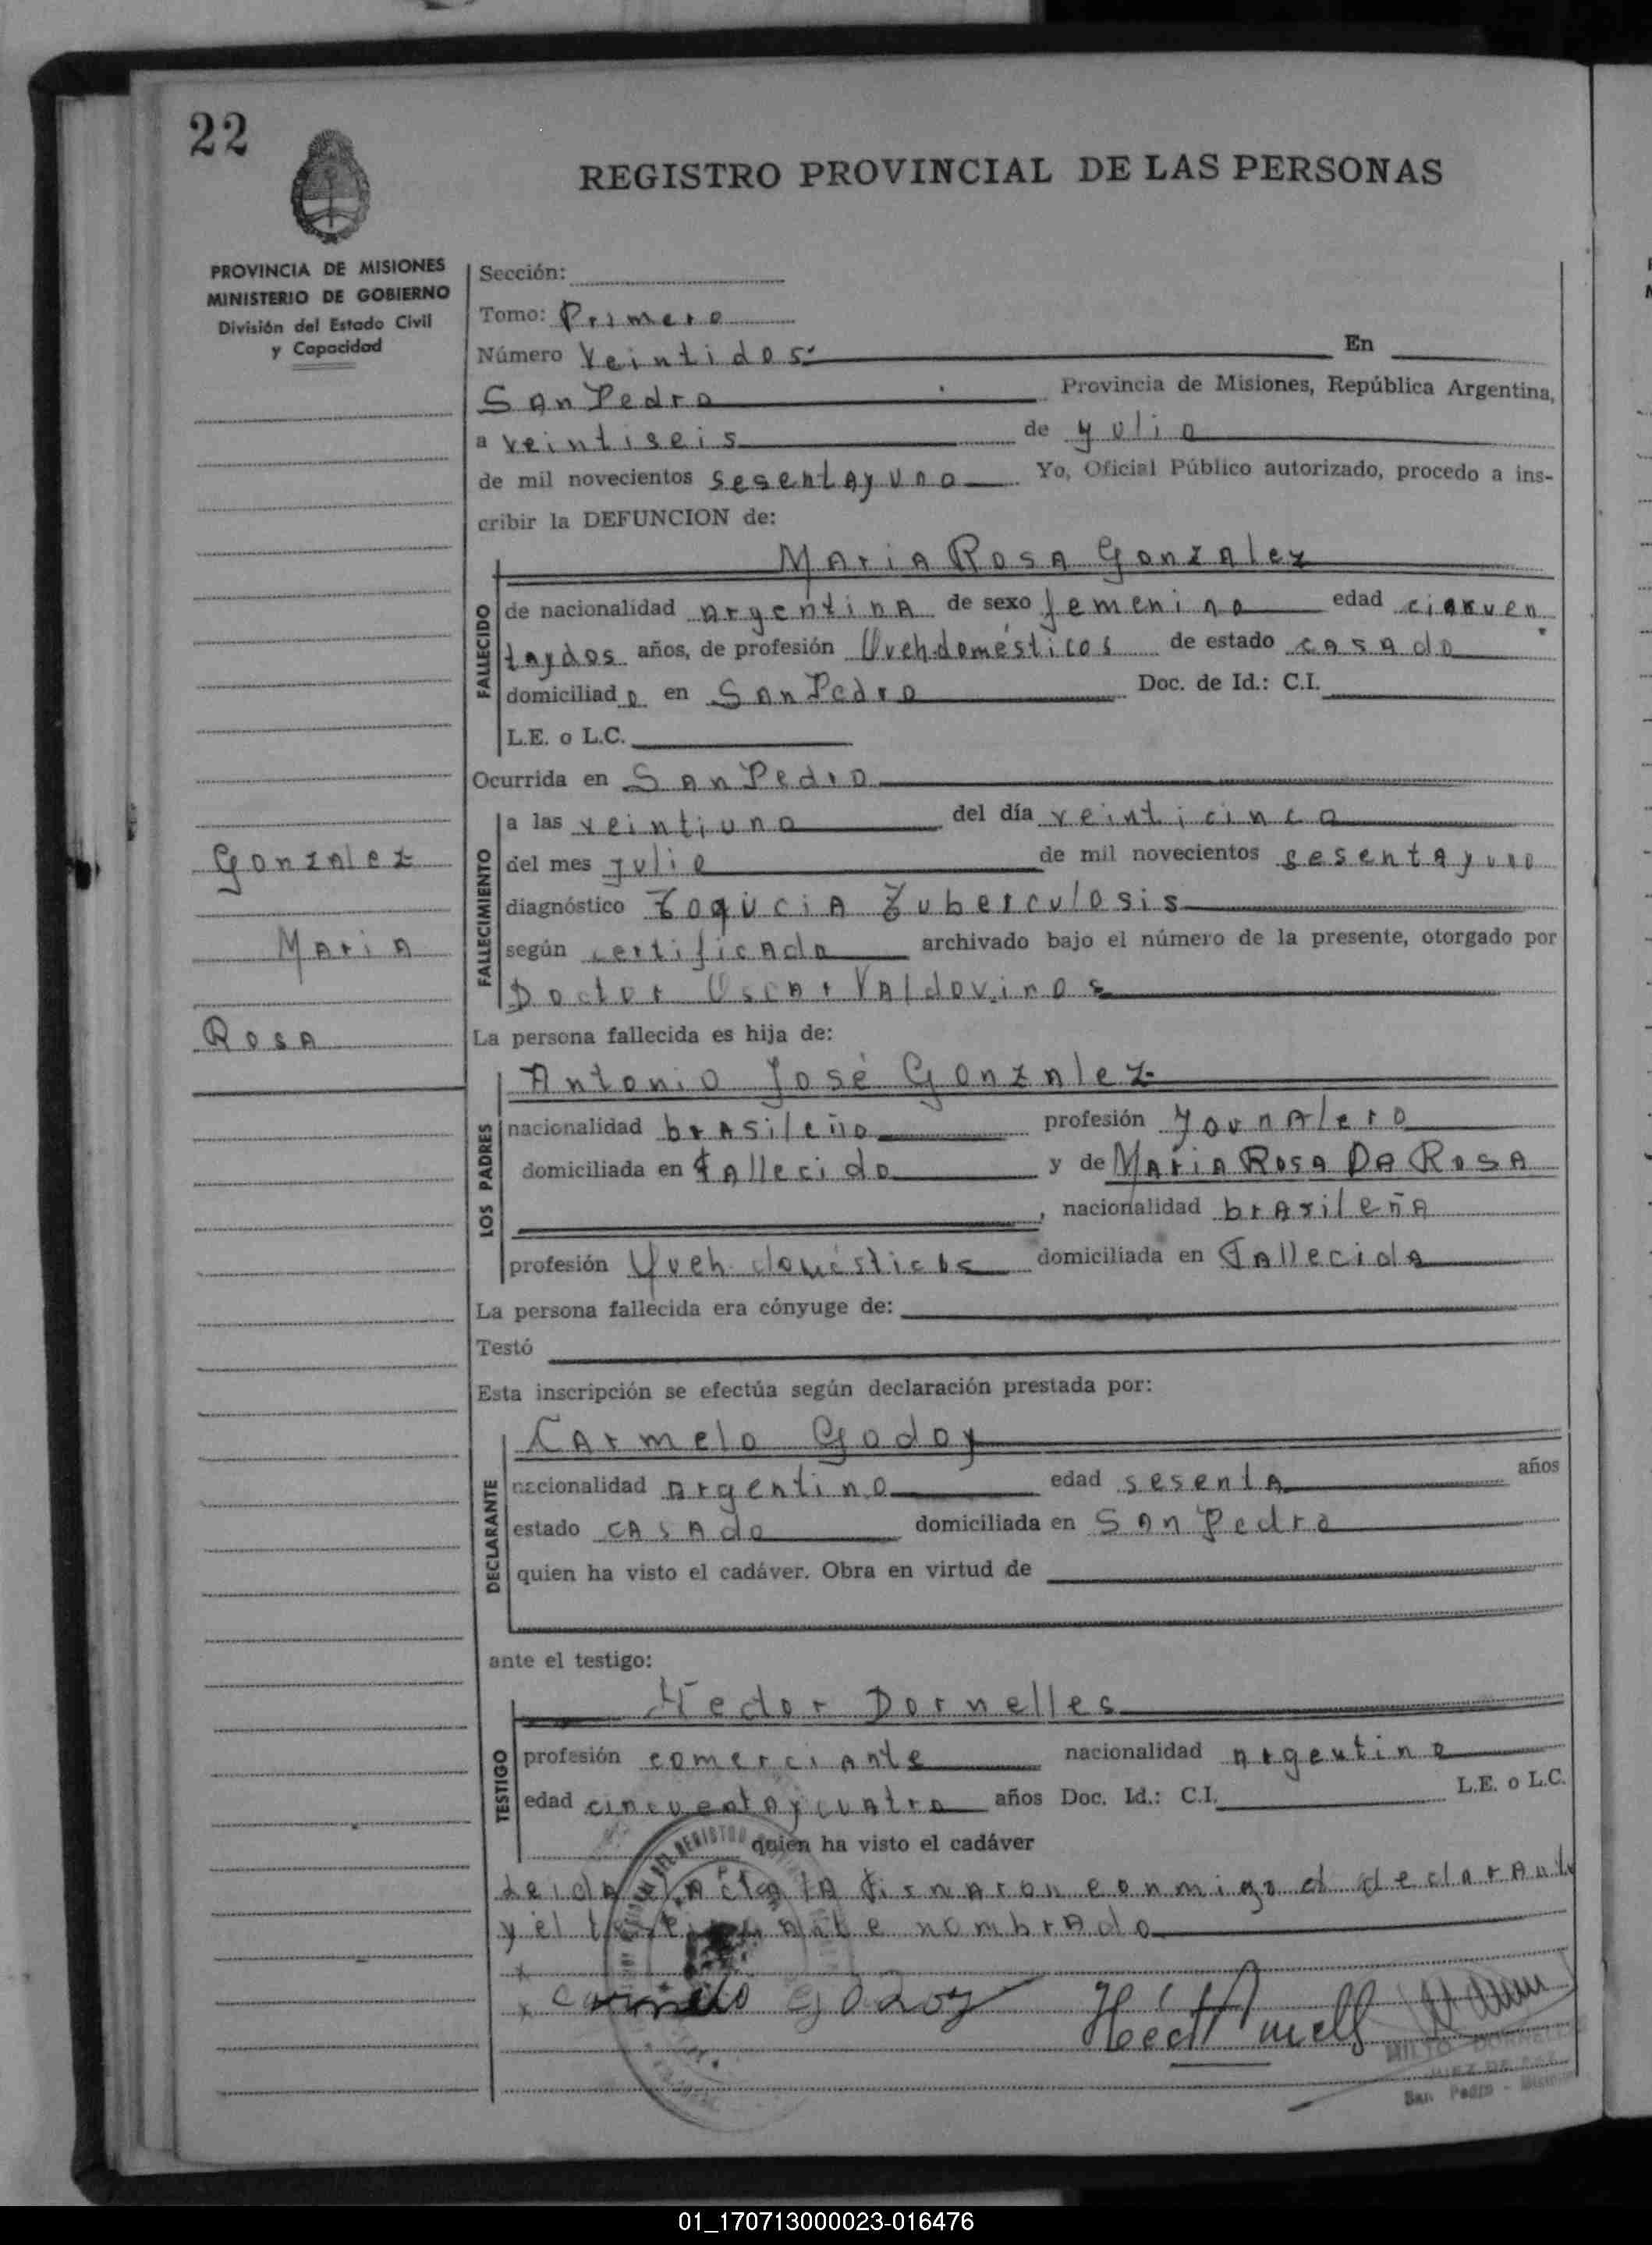 22
REGISTRO PROVINCIAL DE LAS PERSONAS
PROVINCIA DE MISIONES
MINISTERIO DE GOBIERNO
División del Estado Civil
y Capacidad
Sección:
Tomo: Primero
Número Veintidos En
San Pedro Provincia de Misiones, República Argentina,
a veintiseis de yulio
de mil novecientos sesentayuno Yo, Oficial Público autorizado, procedo a ins-
cribir la DEFUNCION de:
Maria Rosa Gonzalez
FALLECIDO
de nacionalidad argentina de sexo femenino edad cinkuen
taydos años, de profesión Queh.domésticos de estado casado
domiciliado en San Pedro Doc. de Id.: C.I.
L.E. o L.C.
Ocurrida en San Pedro
FALLECIMIENTO
a las veintiuno del día veinticinco
del mes julio de mil novecientos sesentayuno
diagnóstico Toqucia Tuberculosis
según certificado archivado bajo el número de la presente, otorgado por
Doctor Oscar Valdovinos
Gonzalez
Maria
Rosa
La persona fallecida es hija de:
LOS PADRES
Antonio José Gonzalez
nacionalidad brasileño profesión Journalero
domiciliada en Fallecido y de Maria Rosa Da Rosa
, nacionalidad brasileña
profesión Queh domésticos domiciliada en Fallecida
La persona fallecida era cónyuge de:
Testó
Esta inscripción se efectúa según declaración prestada por:
DECLARANTE
Carmelo Godoy
nacionalidad argentino edad sesenta años
estado casado domiciliada en San Pedro
quien ha visto el cadáver. Obra en virtud de
ante el testigo:
TESTIGO
Hector Dornelles
profesión comerciante nacionalidad argentino
edad cincuentaycuatro años Doc. Id.: C.I. L.E. o L.C.
quien ha visto el cadáver
Leida el acta la firmaron conmigo el declarante
y el testigo ante nombrado
Carmelo Godoy
MILTO DORNELLES
JUEZ DE PAZ
San Pedro - Misiones
01_170713000023-016476